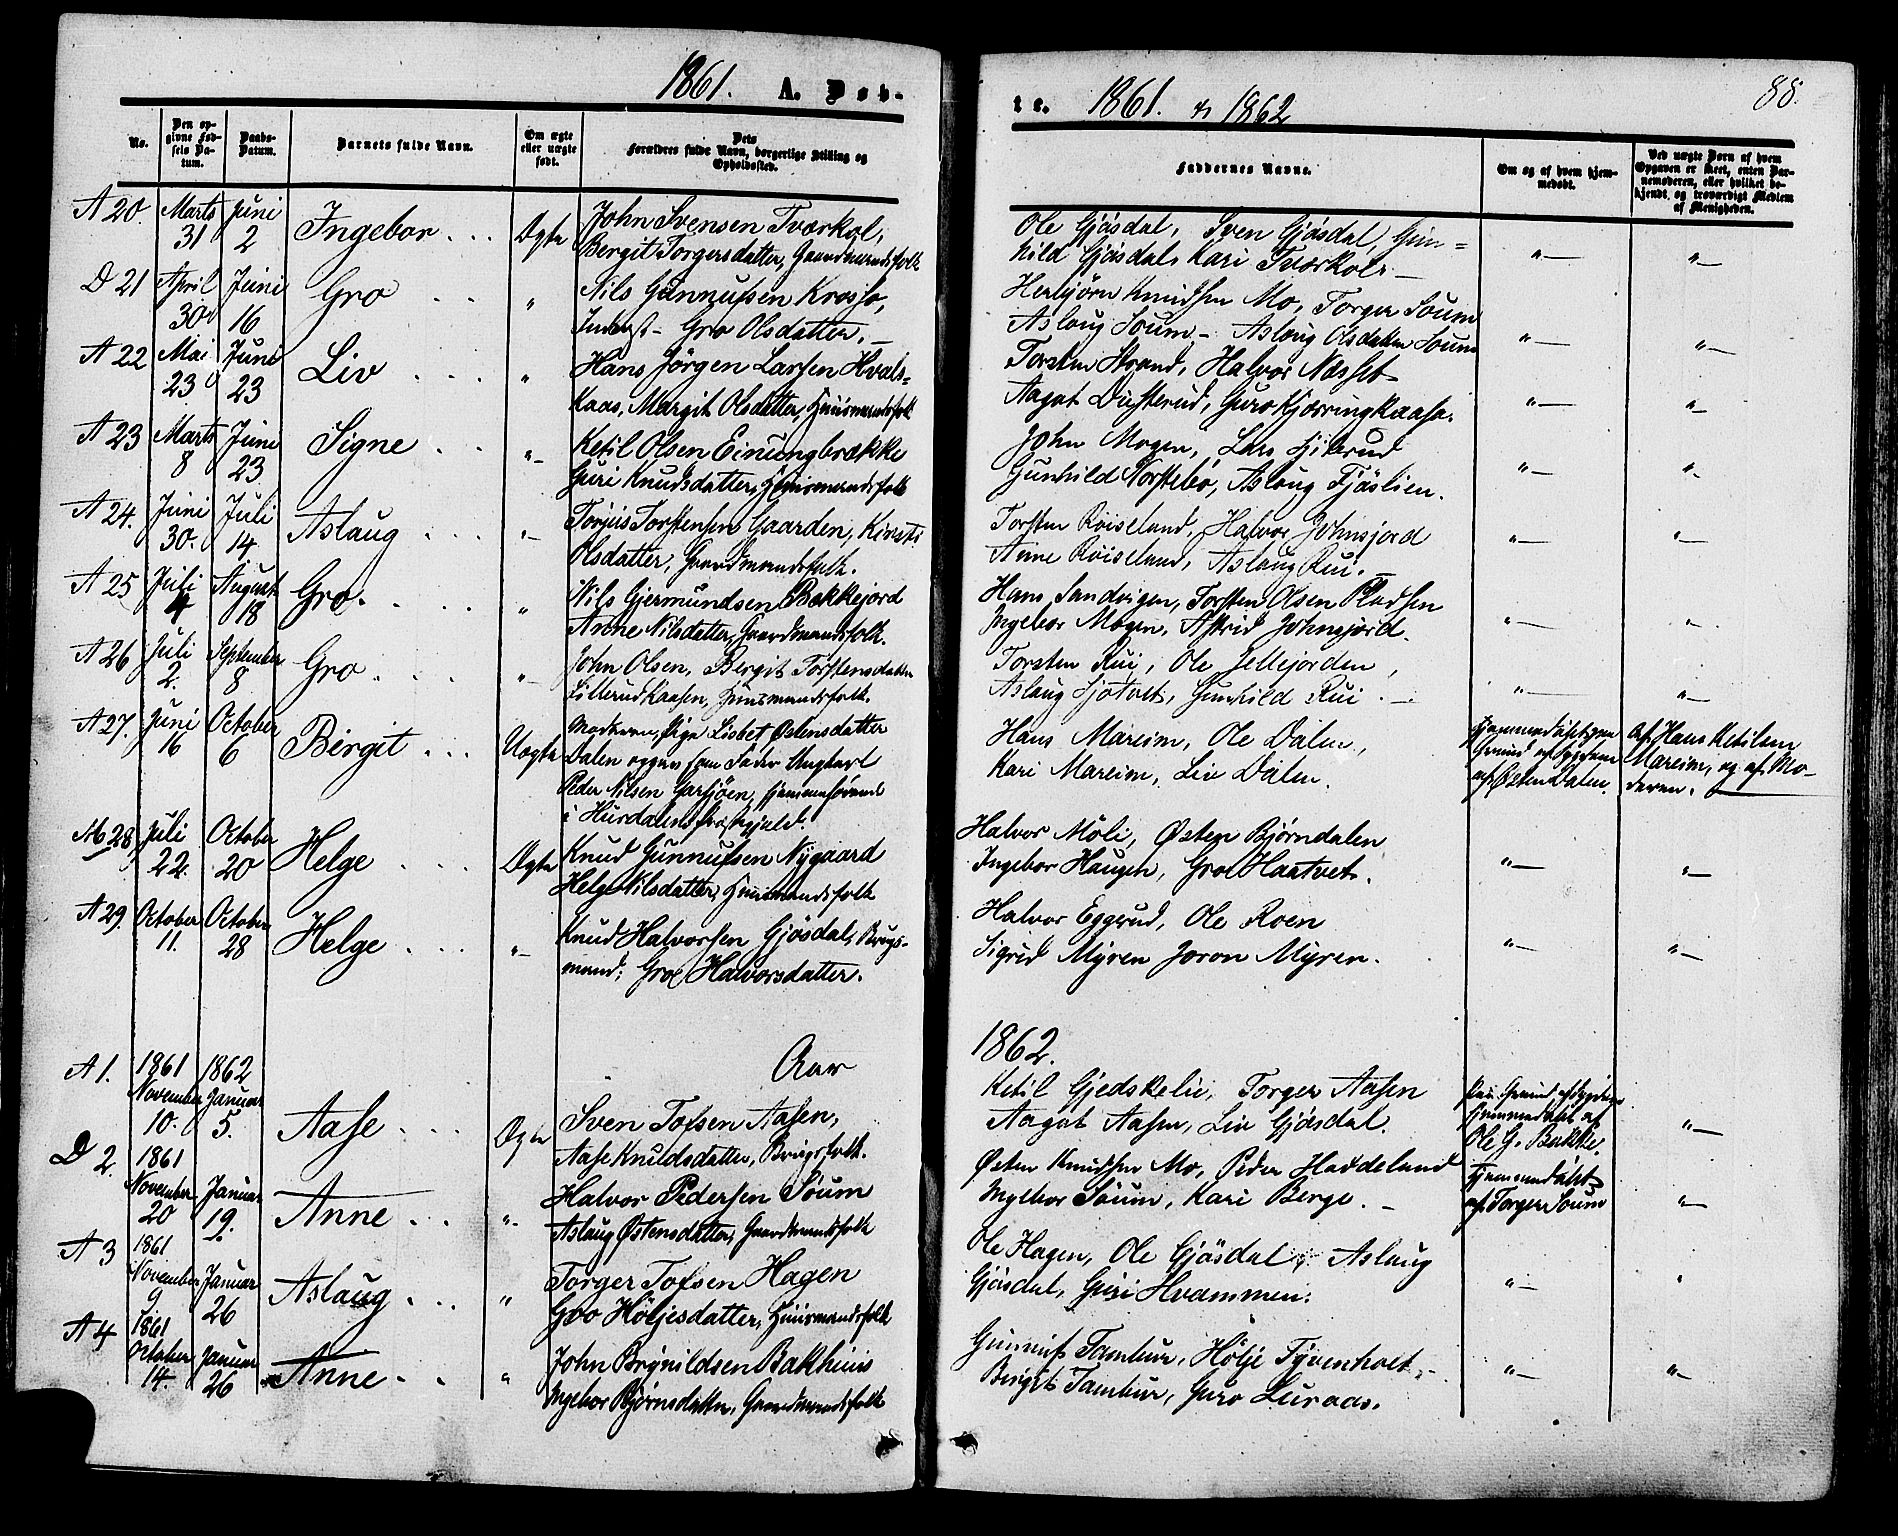 1861. A. Døb-
No.
Den op-
givne Fød-
sels Da-
tum.
Daabs-
Datum.
Barnets fulde Navn.
Om ægte
eller uægte
født.
Dets
Forældres fulde Navn, borgerlige Stilling og
Opholdssted.
A 20 Marts 31 Juni 2 Ingebor . . . Ægte
John Svensen Tværkol,
Bergit Torgersdatter, Gaardmandsfolk
D 21 April 30 Juni 16 Gro . . "
Nils Gunnufsen Krosso,
Inderst - Gro Olsdatter. -
A 22 Mai 23 Juni 23 Liv . . . "
Hans Jörgen Larsen Hvals=
kaas, Margit Olsdatter, Huusmandsfolk
A 23 Marts 8 Juni 23 Signe . . "-
Ketil Olsen Einungbrække
Guri Knudsdatter, Huusmandsfolk
A 24. Juni 30. Juli 14 Aslaug . . . "-
Torjus Torstensen Gaarden, Kirsti
Olsdatter, Gaardmandsfolk.
A 25 Juli 4 August 18 Gro. . . . "
Nils Gjermundsen Bakkejord
Anne Nilsdatter, Gaardmandsfolk.
A 26 Juli 2. September 8 Gro . . . "-
John Olsen, Bergit Torstensdatter
Lillerudkaasen, Huusmandsfolk.
A 27. Juni 16 October 6 Birgit . . . Uægte
Moderen, Pige Lisbet Østensdatter
Dalen opgav som Fader Ungkarl
Peder Nilsen Garsjøen, hjemmehørende
i Hurdalens Præstegjeld.
No 28 Juli 22. October 20 Helge . . . Ægte
Knud Gunnufsen Nygaard
Helge Nilsdatter, Huusmandsfolk
A 29. October 11. October 28 Helge . . . "-
Knud Halvorsen Gjøsdal, Brugs-
mand; Gro Halvorsdatter.
Aar
A 1. 1861 November 10. 1862 Januar 5. Aase . . . Ægte
Sven Tofsen Aasen,
Aase Knudsdatter, Brugsfolk.
D 2 1861 November 20 Januar 19. Anne . . . "-
Halvor Pedersen Söum
Aslaug Østensdatter, Gaardmandsfolk
A 3 1861 November 9 Januar 26 Aslaug . . . "
Torger Tofsen Hagen
Gro Höljesdatter, Huusmandsfolk
A 4 1861 October 14. Januar 26 Anne . . "
John Brynildsen Bakhuus
Ingebor Bjørnsdatter, Gaardmandsfolk
te. 1861. & 1862 88.
Faddernes Navne.
Om og af hvem hjem-
medøbt.
Ved uægte Børn af hvem
Opgaven er skeet, enten Bar-
nemoderen, eller hvilket be-
kjendt og troværdigt Medlem
af Menigheden.
Ole Gjøsdal, Sven Gjøsdal, Gun=
hild Gjøsdal, Kari Tværkol. - "- "-
Herbjörn Knudsen Mo, Torger Soum
Aslaug Soum - Aslaug Olsdatter Soum "- "-
Torsten Strand, Halvor Næsset
Aagot Dusterud, Guro Kjærringkaasa. "- "-
John Mogen, Lars
Gunhild Vorstebö, Aslaug Fjöslien. "- "-
Torsten Röiseland, Halvor Johnsjord
Anne Röiseland, Aslaug Rui. - "- "-
Hans Sandvigen, Torsten Olsen Pladsen
Ingebor Mogen, Astrid Johnsjord. "- "-
Torsten Rui, Ole Jellejorden,
Aslaug Sjötvet, Gunhild Rui. - "- "-
Hans Mareim, Ole Dalen,
Kari Mareim, Liv Dalen.
Hjemmedöbt paa
Grund af Sygdom
af Østen Dalen.
Af Hans Ketilsen
Mareim, og af Mo-
deren.
Halvor Möli, Østen Bjørndalen
Ingebor Haugen, Gro Haatvet. "- "-
Halvor Eggerud, Ole Roen
Sigrid Myren Joron Myren. "- "-
1862.
Ketil Gjedskelie, Torger Aasen
Aagot Aasen, Liv Gjøsdal.
Paa Grund af Sygdom
hjemmedöbt af
Ole G. Bakke.
"-
Østen Knudsen Mo, Peder Haddeland
Ingebor Söum, Kari Berge. -
Hjemmedöbt
af Torger Soum
"-
Ole Hagen, Ole Gjøsdal, Aslaug
Gjøsdal, Guri Hvammen. "- "
Gunnuf Tamtur, Hölje Tyvenholt, -
Birgit Tamtur, Guro Luraas. "- "-